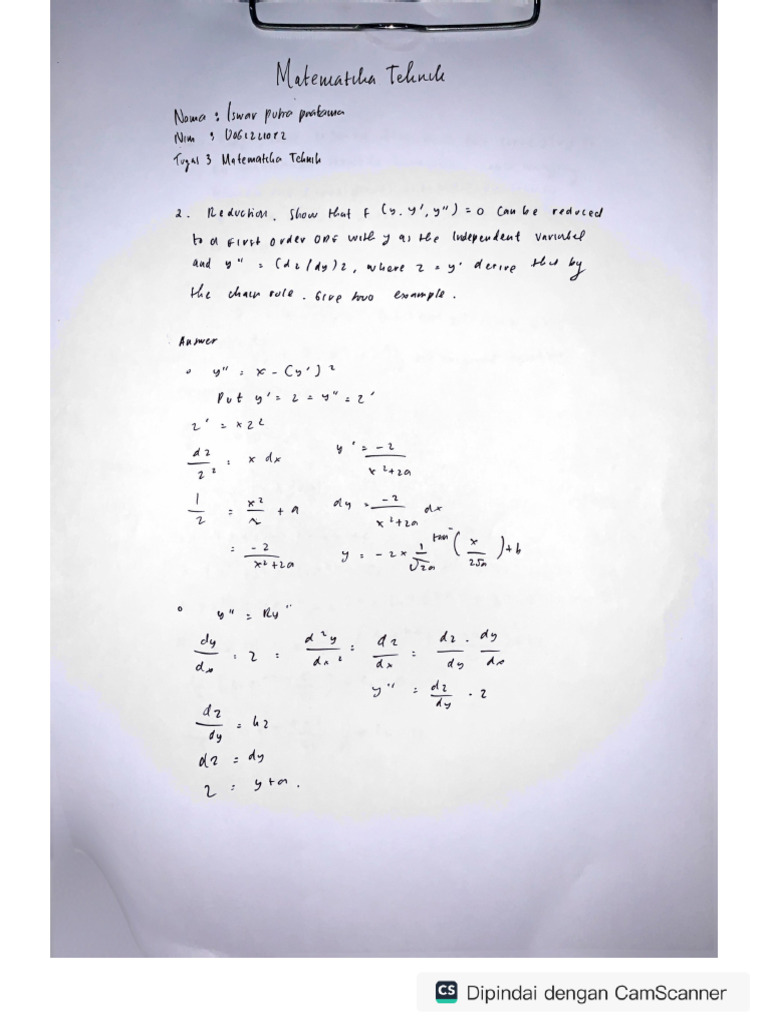 Matematika Teknik
Nama : Iswar putra pratama
Nim :
Tugas 3 Matematika Teknik
2. Reduction. Show that F (y, y', y'') = 0 can be reduced
to a first order ODE with y as the Independent variabel
and y'' = (dz/dy)z, where z = y' derive this by
the chain rule. Give two example.
Answer
• y'' = x - (y')²
Put y' = z = y'' = z'
z' = xz²
dz/z² = x dx
y' = -2/x²+2a
1/z = x²/2 + a
dy = -2/x²+2a dx
= -2/x²+2a
y = -2 x 1/√2a tan⁻ (x/2√a) + b
• y'' = Ky''
dy/dx = z = d²y/dx² = dz/dx = dz/dy . dy/dx
y'' = dz/dy . z
dz/dy = kz
dz = dy
z = y+a.
CS Dipindai dengan CamScanner